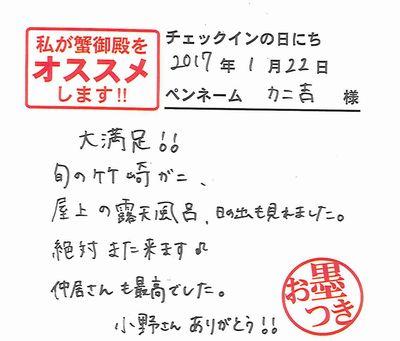 私が蟹御殿を
オススメ
します!!
チェックインの日にち
2017年1月22日
ペンネーム カニ吉 様
大満足!!
旬の竹崎ガニ、
屋上の露天風呂、日の出も見れました。
絶対また来ます♪
仲居さんも最高でした。
小野さんありがとう!!
お墨つき